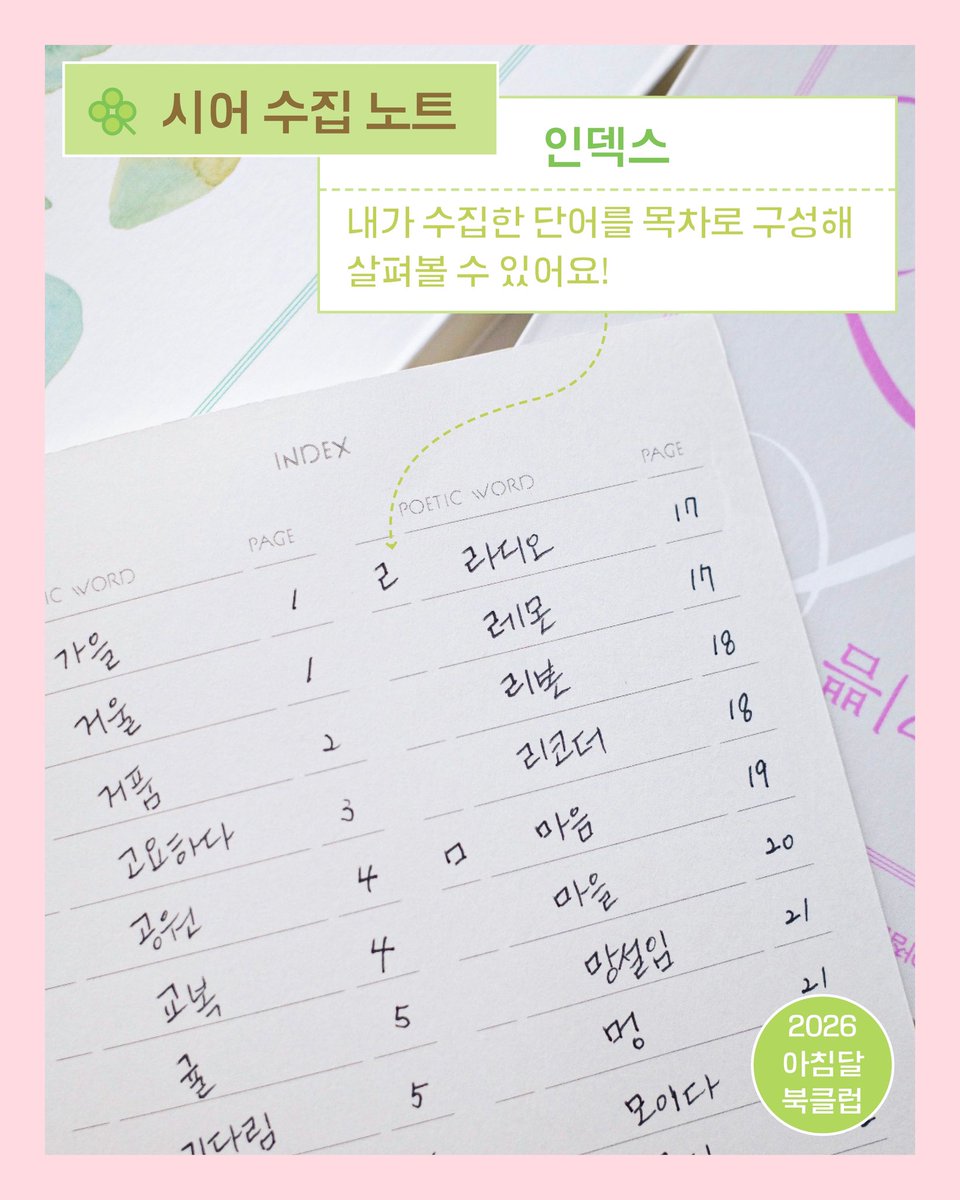 시어 수집 노트
인덱스
내가 수집한 단어를 목차로 구성해
살펴볼 수 있어요!
INDEX
WORD PAGE
가을 1
거울 1
거품 2
고요하다 3
공원 4
교복 4
귤 5
기다림 5
POETIC WORD PAGE
ㄹ 라디오 17
레몬 17
리본 18
리코더 18
ㅁ 마음 19
마을 20
망설임 21
멍 21
모이다
기쁨
2026
아침달
북클럽